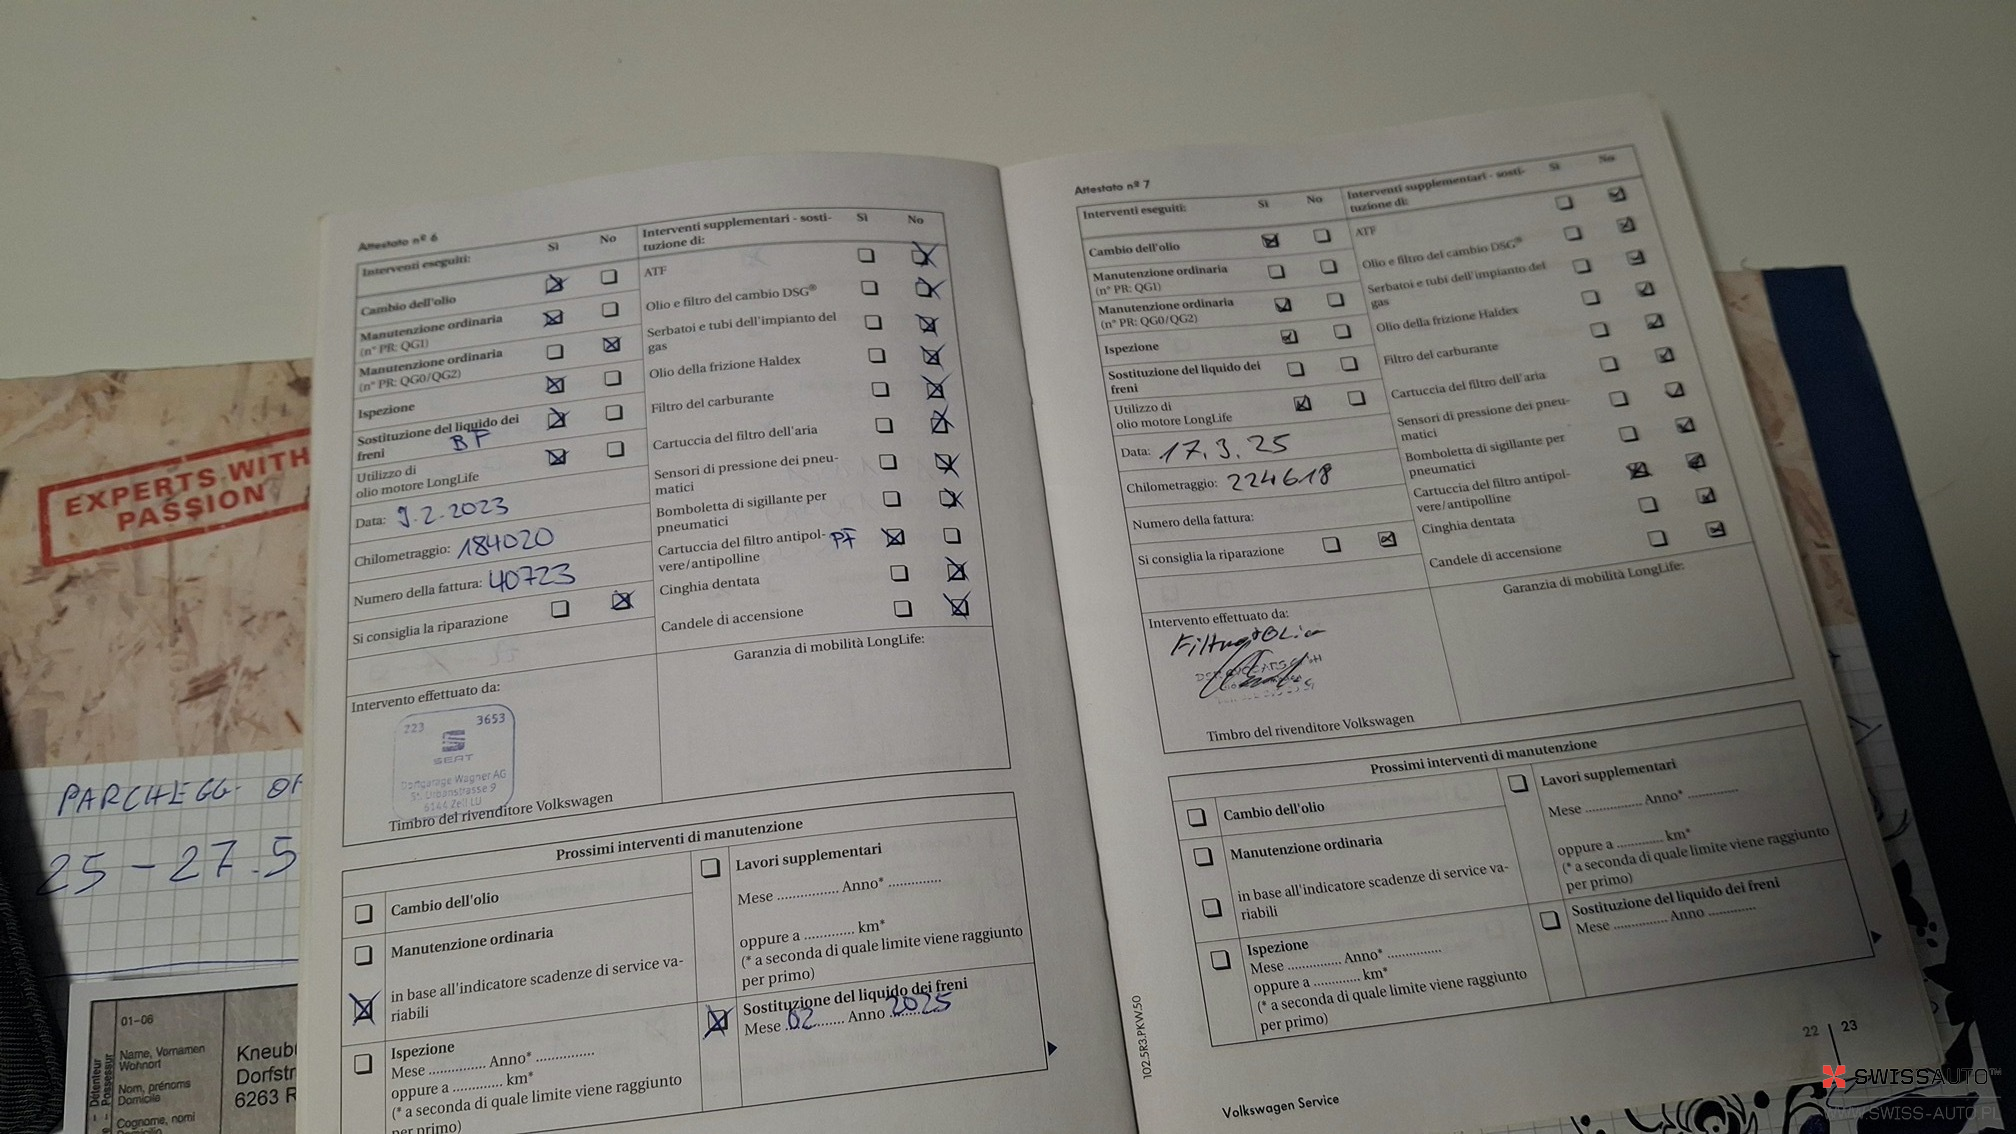 EXPERTS WITH
PASSION
PARCHEGG
25 - 27.5
01-06
Name, Vornamen
Wohnort
Nom, prénoms
Domicile
Cognome, nomi
Détenteur
Dorfstr
6263 R
Attestato nº 6
Interventi eseguiti: Sì No
Cambio dell'olio
Manutenzione ordinaria
(nº PR: QG1)
Manutenzione ordinaria
(nº PR: QG0/QG2)
Ispezione
Sostituzione del liquido dei
freni BF
Utilizzo di
olio motore LongLife
Data: 9.2.2023
Chilometraggio: 184020
Numero della fattura: 40723
Si consiglia la riparazione
Interventi supplementari - sosti-
tuzione di: Sì No
ATF
Olio e filtro del cambio DSG®
Serbatoi e tubi dell'impianto del
gas
Olio della frizione Haldex
Filtro del carburante
Cartuccia del filtro dell'aria
Sensori di pressione dei pneu-
matici
Bomboletta di sigillante per
pneumatici
Cartuccia del filtro antipol- PF
vere/antipolline
Cinghia dentata
Candele di accensione
Intervento effettuato da:
723 3653
SEAT
Dorfgarage Wagner AG
St. Urbanstrasse 9
6144 Zell LU
Timbro del rivenditore Volkswagen
Garanzia di mobilità LongLife:
Prossimi interventi di manutenzione
Cambio dell'olio
Manutenzione ordinaria
in base all'indicatore scadenze di service va-
riabili
Ispezione
Mese ............... Anno* ...............
oppure a ............. km*
(* a seconda di quale limite viene raggiunto
per primo)
Lavori supplementari
Mese ............... Anno* .............
oppure a ............. km*
(* a seconda di quale limite viene raggiunto
per primo)
Sostituzione del liquido dei freni
Mese 02 Anno 2025
Attestato nº 7
Interventi eseguiti: Sì No
Cambio dell'olio
Manutenzione ordinaria
(nº PR: QG1)
Manutenzione ordinaria
(nº PR: QG0/QG2)
Ispezione
Sostituzione del liquido dei
freni
Utilizzo di
olio motore LongLife
Data: 17.3.25
Chilometraggio: 224618
Numero della fattura:
Si consiglia la riparazione
Interventi supplementari - sosti-
tuzione di: Sì No
ATF
Olio e filtro del cambio DSG®
Serbatoi e tubi dell'impianto del
gas
Olio della frizione Haldex
Filtro del carburante
Cartuccia del filtro dell'aria
Sensori di pressione dei pneu-
matici
Bomboletta di sigillante per
pneumatici
Cartuccia del filtro antipol-
vere/antipolline
Cinghia dentata
Candele di accensione
Intervento effettuato da:
Timbro del rivenditore Volkswagen
Garanzia di mobilità LongLife:
Prossimi interventi di manutenzione
Cambio dell'olio
Manutenzione ordinaria
in base all'indicatore scadenze di service va-
riabili
Ispezione
Mese .............. Anno* ...............
oppure a ............. km*
(* a seconda di quale limite viene raggiunto
per primo)
Lavori supplementari
Mese ............... Anno* .............
oppure a ............. km*
(* a seconda di quale limite viene raggiunto
per primo)
Sostituzione del liquido dei freni
Mese .............. Anno .............
102.5R3.PKW.50
22 | 23
Volkswagen Service
SWISSAUTO™
WWW.SWISS-AUTO.PL